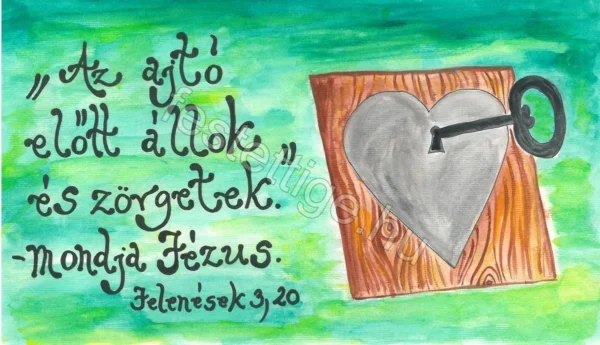 „Az ajtó
előtt állok „
és zörgetek.
-mondja Jézus.
Jelenések 3, 20
festettige.hu